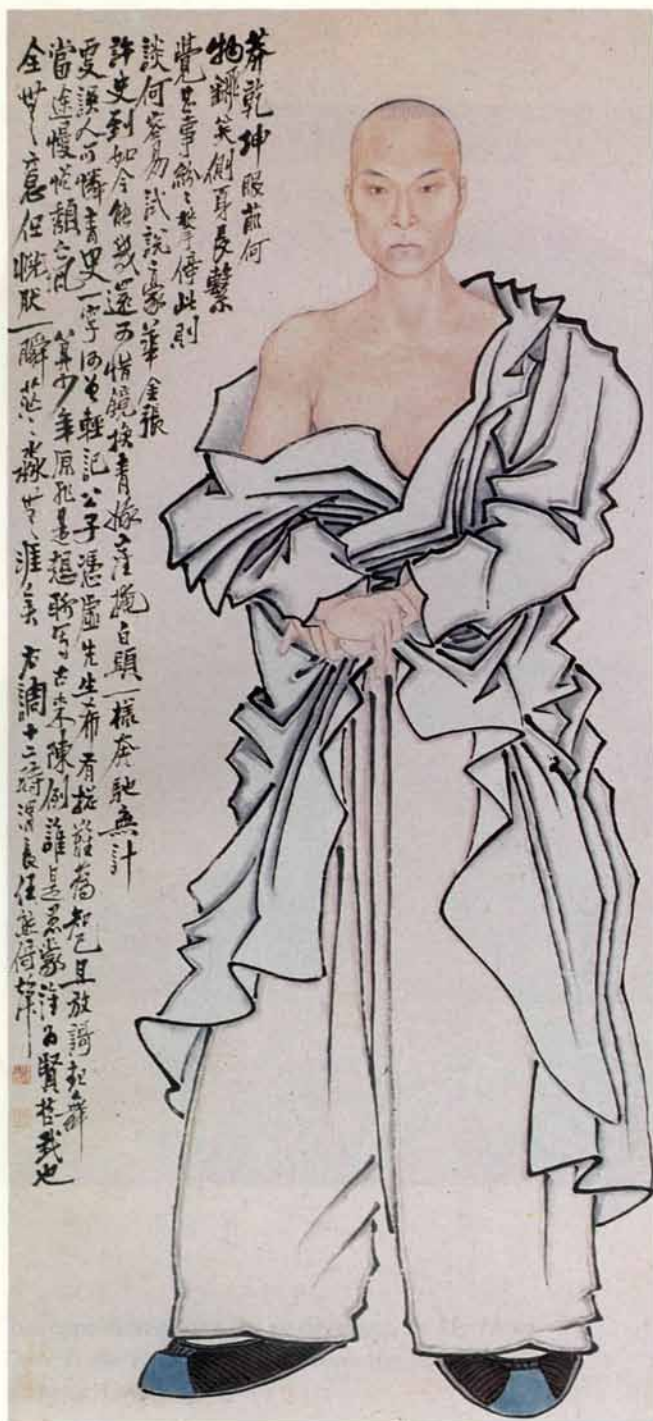 莽乾坤眼前何
物翻笑側身長繫
覺甚事紛〻攀倚此則
談何容易試說豪華金張
許史到如今能幾還可惜鏡換青娥塵掩白頭一樣奔馳無計
更誤人可憐青史一字何曾輕記公子憑虛先生希有總難為知己且放謌起舞
當途慢憎頹氣 算少年原非是想聊寫古來陳例誰是愚蒙誰為賢哲我也
全無意但恍然一瞬茫〻淼無涯矣 右調十二時渭長任熊倚聲